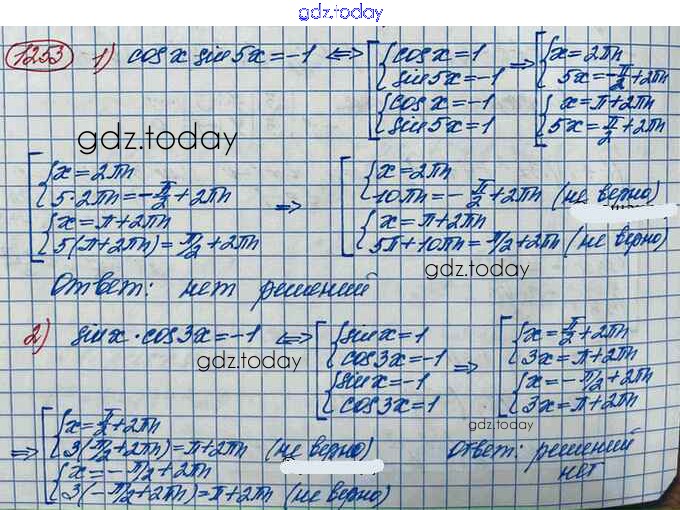 gdz.today
1253 1) cosx sin5x=-1 ⇔ [{cosx=1 sin5x=-1 {cosx=-1 sin5x=1 ⇒ [{x=2πn 5x=-π/2+2πn {x=π+2πn 5x=π/2+2πn
gdz.today
[{x=2πn 5·2πn=-π/2+2πn {x=π+2πn 5(π+2πn)=π/2+2πn ⇒ [{x=2πn 10πn=-π/2+2πn (не верно) {x=π+2πn 5π+10πn=π/2+2πn (не верно)
gdz.today
Ответ: нет решений
2) sinx·cos3x=-1 ⇔ [{sinx=1 cos3x=-1 {sinx=-1 cos3x=1 ⇒ [{x=π/2+2πn 3x=π+2πn {x=-π/2+2πn 3x=π+2πn
gdz.today
gdz.today
⇒ [{x=π/2+2πn 3(π/2+2πn)=π+2πn (не верно) {x=-π/2+2πn 3(-π/2+2πn)=π+2πn (не верно)
Ответ: решений
нет